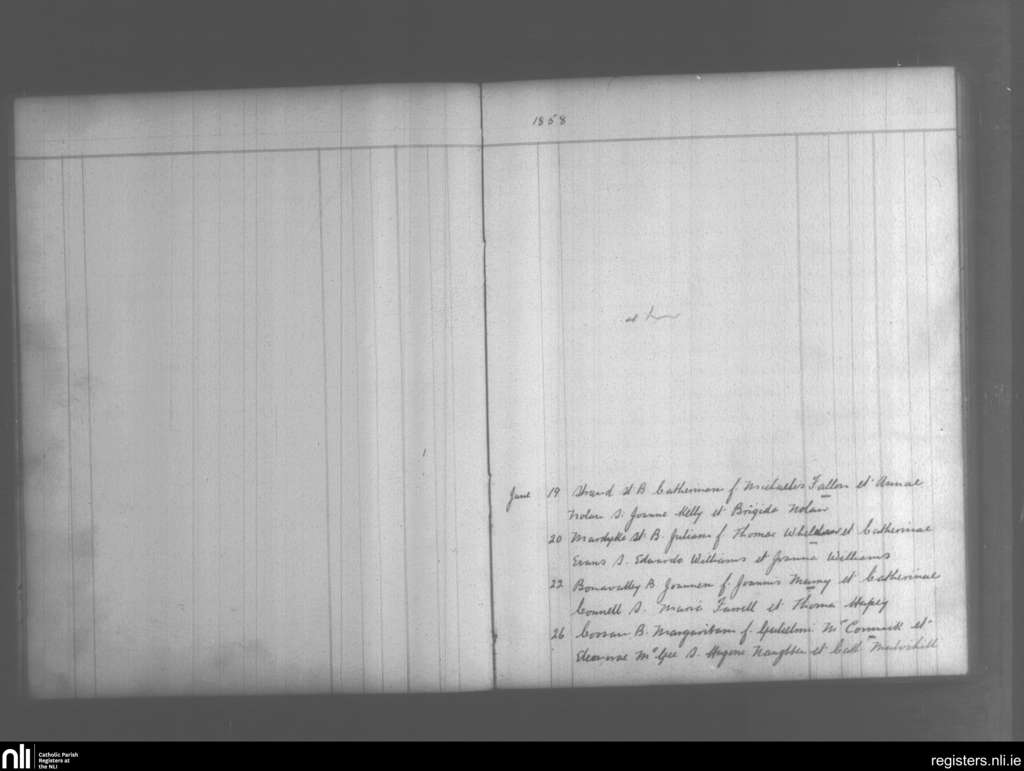 1858
et
June 19 Strand st B Catherinam f. Michaelis Fallon et Annae
Nolan S. Joanne Kelly et Brigida Nolan
20 Mardyke st. B. Juliam f. Thomae et Catherinae
Evans S. Edwardo Williams et Joanna Williams
22 Bonavalley B Joannem f. Joannis et Catherinae
Connell S. Maria Farrell et Thoma
26 Coosan B. Margaritam f. Gulielmi McCormick et
Eleanorae McGee S. Eugene Naughten et Cath
nli
Catholic Parish
Registers at
the NLI
registers.nli.ie